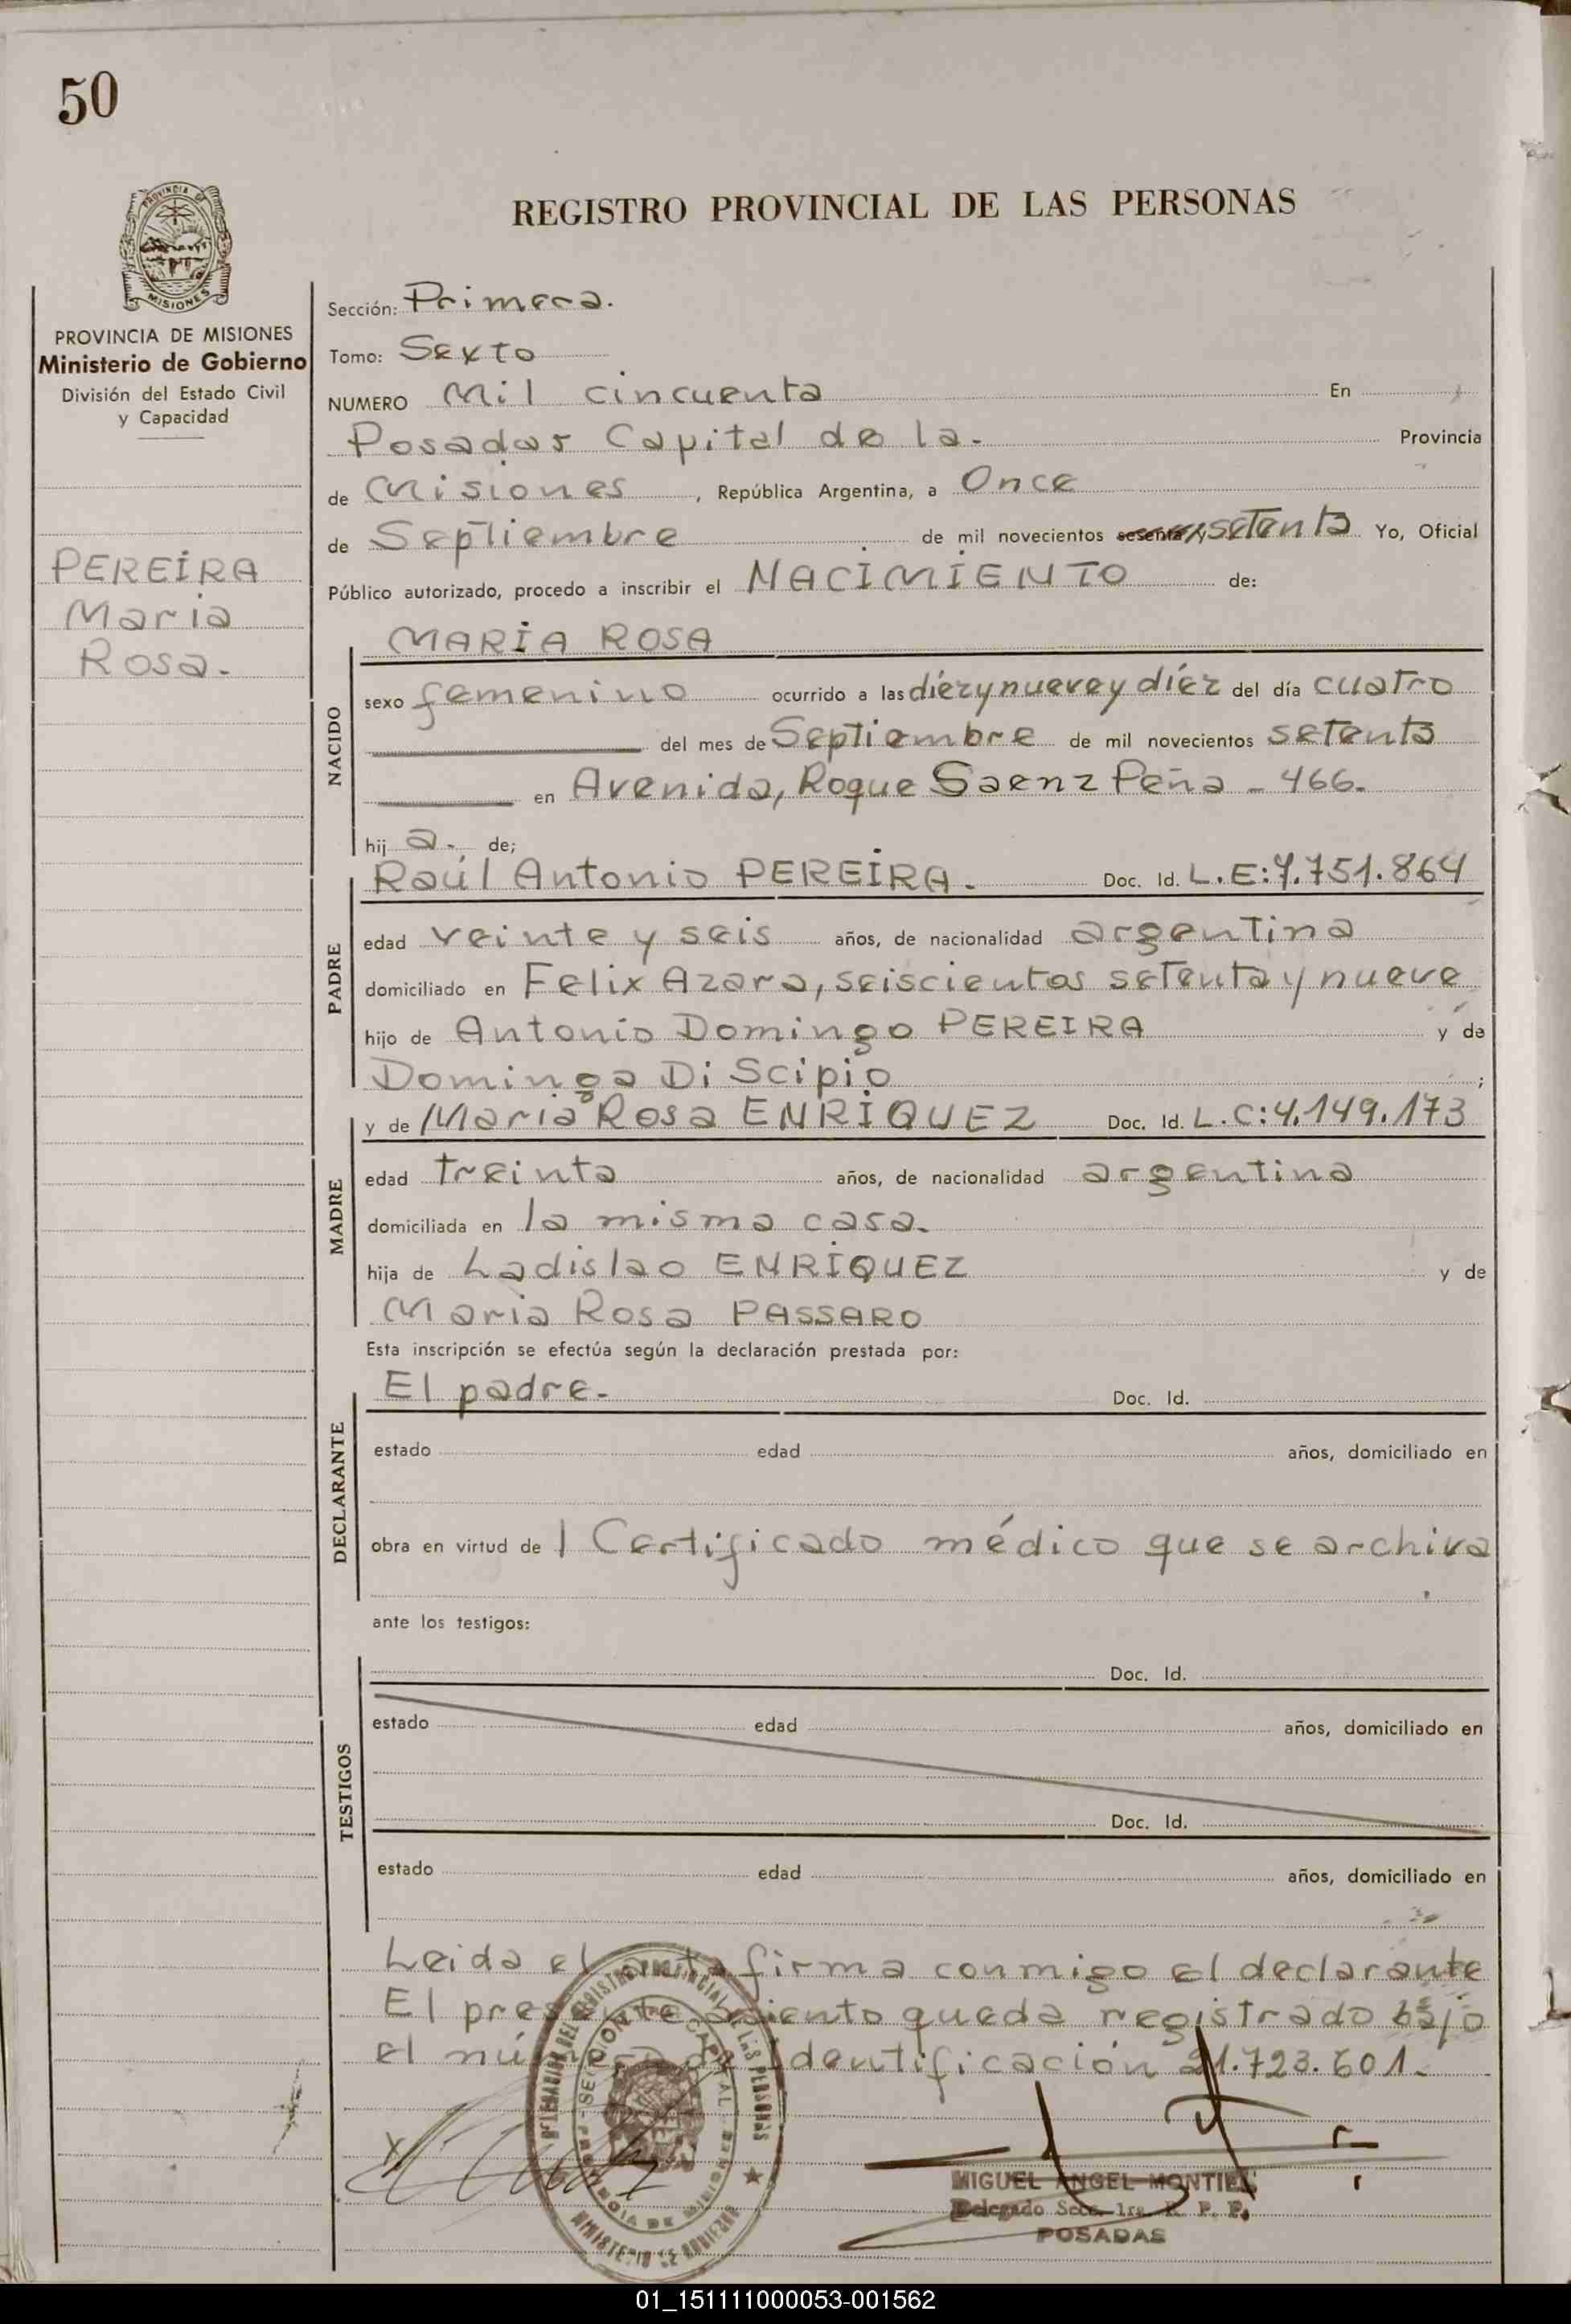 50
PROVINCIA DE
MISIONES
REGISTRO PROVINCIAL DE LAS PERSONAS
PROVINCIA DE MISIONES
Ministerio de Gobierno
División del Estado Civil
y Capacidad
PEREIRA
Maria
Rosa.-
Sección: Primera.
Tomo: Sexto
NUMERO Mil cincuenta En
Posadas Capital de la.- Provincia
de Misiones, República Argentina, a Once
de Septiembre de mil novecientos sesenta y setenta Yo, Oficial
Público autorizado, procedo a inscribir el NACIMIENTO de:
MARIA ROSA
NACIDO
sexo femenino ocurrido a las diez y nueve y diéz del día cuatro
del mes de Septiembre de mil novecientos setenta
en Avenida, Roque Saenz Peña - 466.
hij a.- de;
Raúl Antonio PEREIRA.- Doc. Id. L.E:7.751.864
PADRE
edad veinte y seis años, de nacionalidad argentina
domiciliado en Felix Azara, seiscientos setenta y nueve
hijo de Antonio Domingo PEREIRA y de
Dominga Di Scipio ;
y de Maria Rosa ENRIQUEZ Doc. Id. L.C:4.149.173
MADRE
edad treinta años, de nacionalidad argentina
domiciliada en la misma casa.
hija de Ladislao ENRIQUEZ y de
Maria Rosa PASSARO
Esta inscripción se efectúa según la declaración prestada por:
El padre.- Doc. Id.
DECLARANTE
estado edad años, domiciliado en
obra en virtud de 1 Certificado médico que se archiva
.
ante los testigos:
Doc. Id.
TESTIGOS
estado edad años, domiciliado en
Doc. Id.
estado edad años, domiciliado en
Leida el acta firma conmigo el declarante
El presente asiento queda registrado bajo
el número de identificación 21.723.601.-
DELEGACION DEL REGISTRO PROVINCIAL DE LAS PERSONAS
MINISTERIO DE GOBIERNO
SECCION CAPITAL
PROVINCIA DE MISIONES
MIGUEL ANGEL MONTIEL
Delegado Secc. 1ra. R. P. P.
POSADAS
01_151111000053-001562